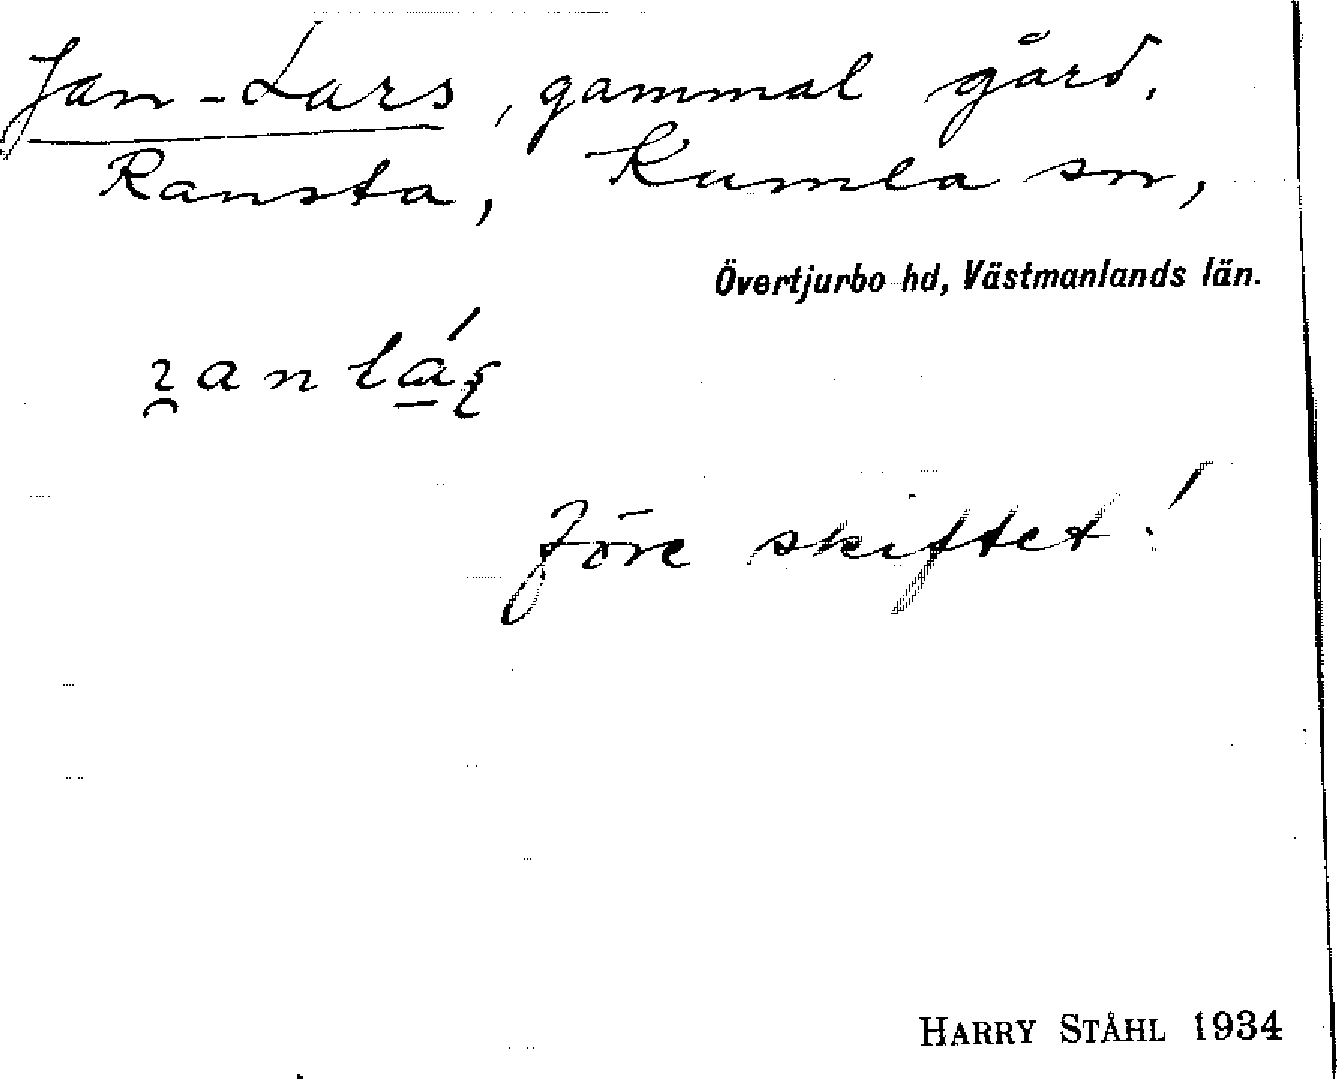 Jan-Lars, gammal gård,
Ransta, Kumla sn,
Övertjurbo hd, Västmanlands län.
Före skiftet!
HARRY STÅHL 1934